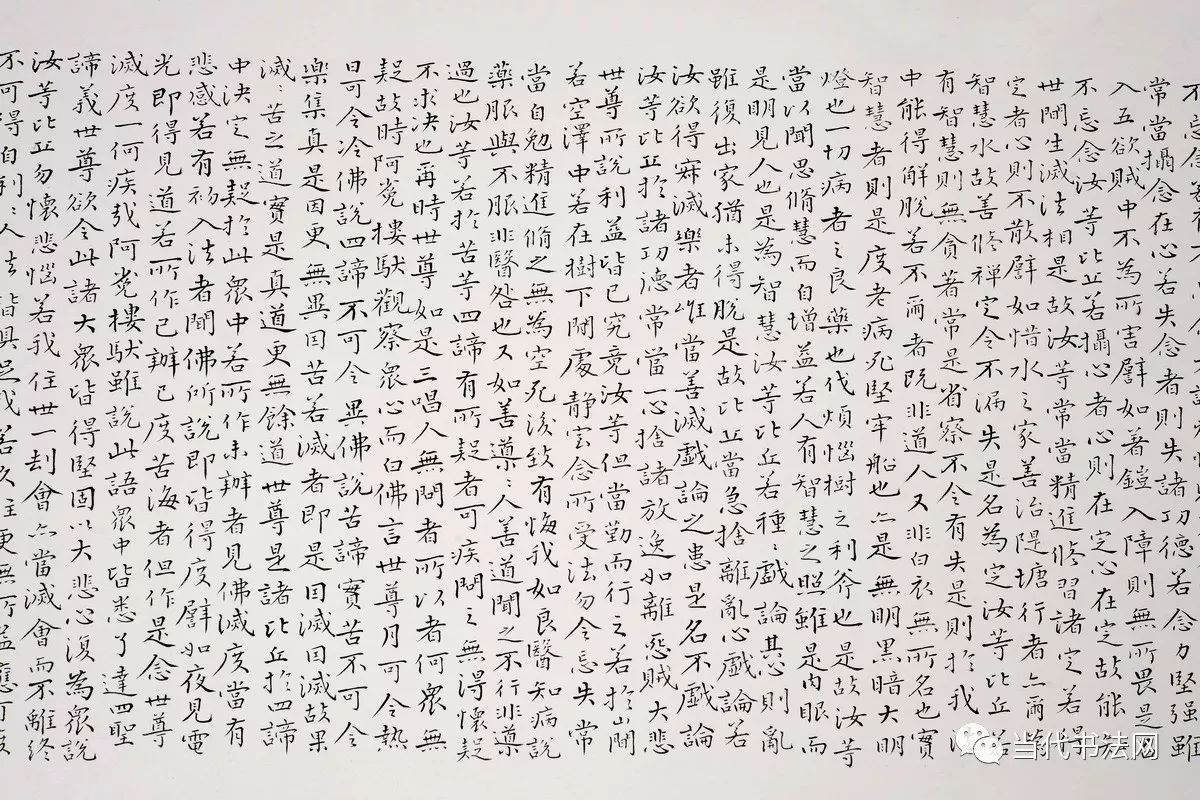 常當攝念在心若失念者則失諸功德若念力堅强雖
入五欲賊中不為所害譬如著鎧入障則無所畏是
不忘念汝等比丘若攝心者心則在定心在定故能知
世間生滅法相是故汝等常當精進修習諸定若得
定者心則不散譬如惜水之家善治隄塘行者亦爾
智慧水故善修禪定令不漏失是名為定汝等比丘若
有智慧則無貪著常是省察不令有失是則於我
中能得解脫若不爾者既非道人又非白衣無所名也實
智慧者則是度老病死堅牢船也亦是無明黑暗大明
燈也一切病者之良藥也伐煩惱樹之利斧也是故汝等
當以聞思脩慧而自增益若人有智慧之照雖是肉眼而
是明見人也是為智慧汝等比丘若種〻戲論其心則亂
雖復出家猶未得脫是故比丘當急捨離亂心戲論若
汝欲得寂滅樂者唯當善滅戲論之患是名不戲論
汝等比丘於諸功德常當一心捨諸放逸如離惡賊大悲
世尊所說利益皆已究竟汝等但當勤而行之若於山間
若空澤中若在樹下閒處静室念所受法勿令忘失常
當自勉精進脩之無為空死後致有悔我如良醫知病說
藥服與不服非醫咎也又如善導〻人善道聞之不行非導
過也汝等若於苦等四諦有所疑者可疾問之無得懷疑
不求決也再時世尊如是三唱人無問者所以者何眾無
疑故時阿㝹樓馱觀察眾心而白佛言世尊月可令熱
日可令冷佛說四諦不可令異佛說苦諦實苦不可令
樂集真是因更無異因苦若滅者即是因滅因滅故果
滅〻苦之道實是真道更無餘道世尊是諸比丘於四諦
中決定無疑於此眾中若所作未辦者見佛滅度當有
悲感若有初入法者聞佛所說即皆得度譬如夜見電
光即得見道若所作已辦已度苦海者但作是念世尊
滅度一何疾哉阿㝹樓馱雖說此語眾中皆悉了達四聖
諦義世尊欲令此諸大眾皆得堅固以大悲心復為眾說
汝等比丘勿懷悲惱若我住世一劫會亦當滅會而不離終
不可得自利〻人法皆具足我若久住更無所益應可度
当代书法网